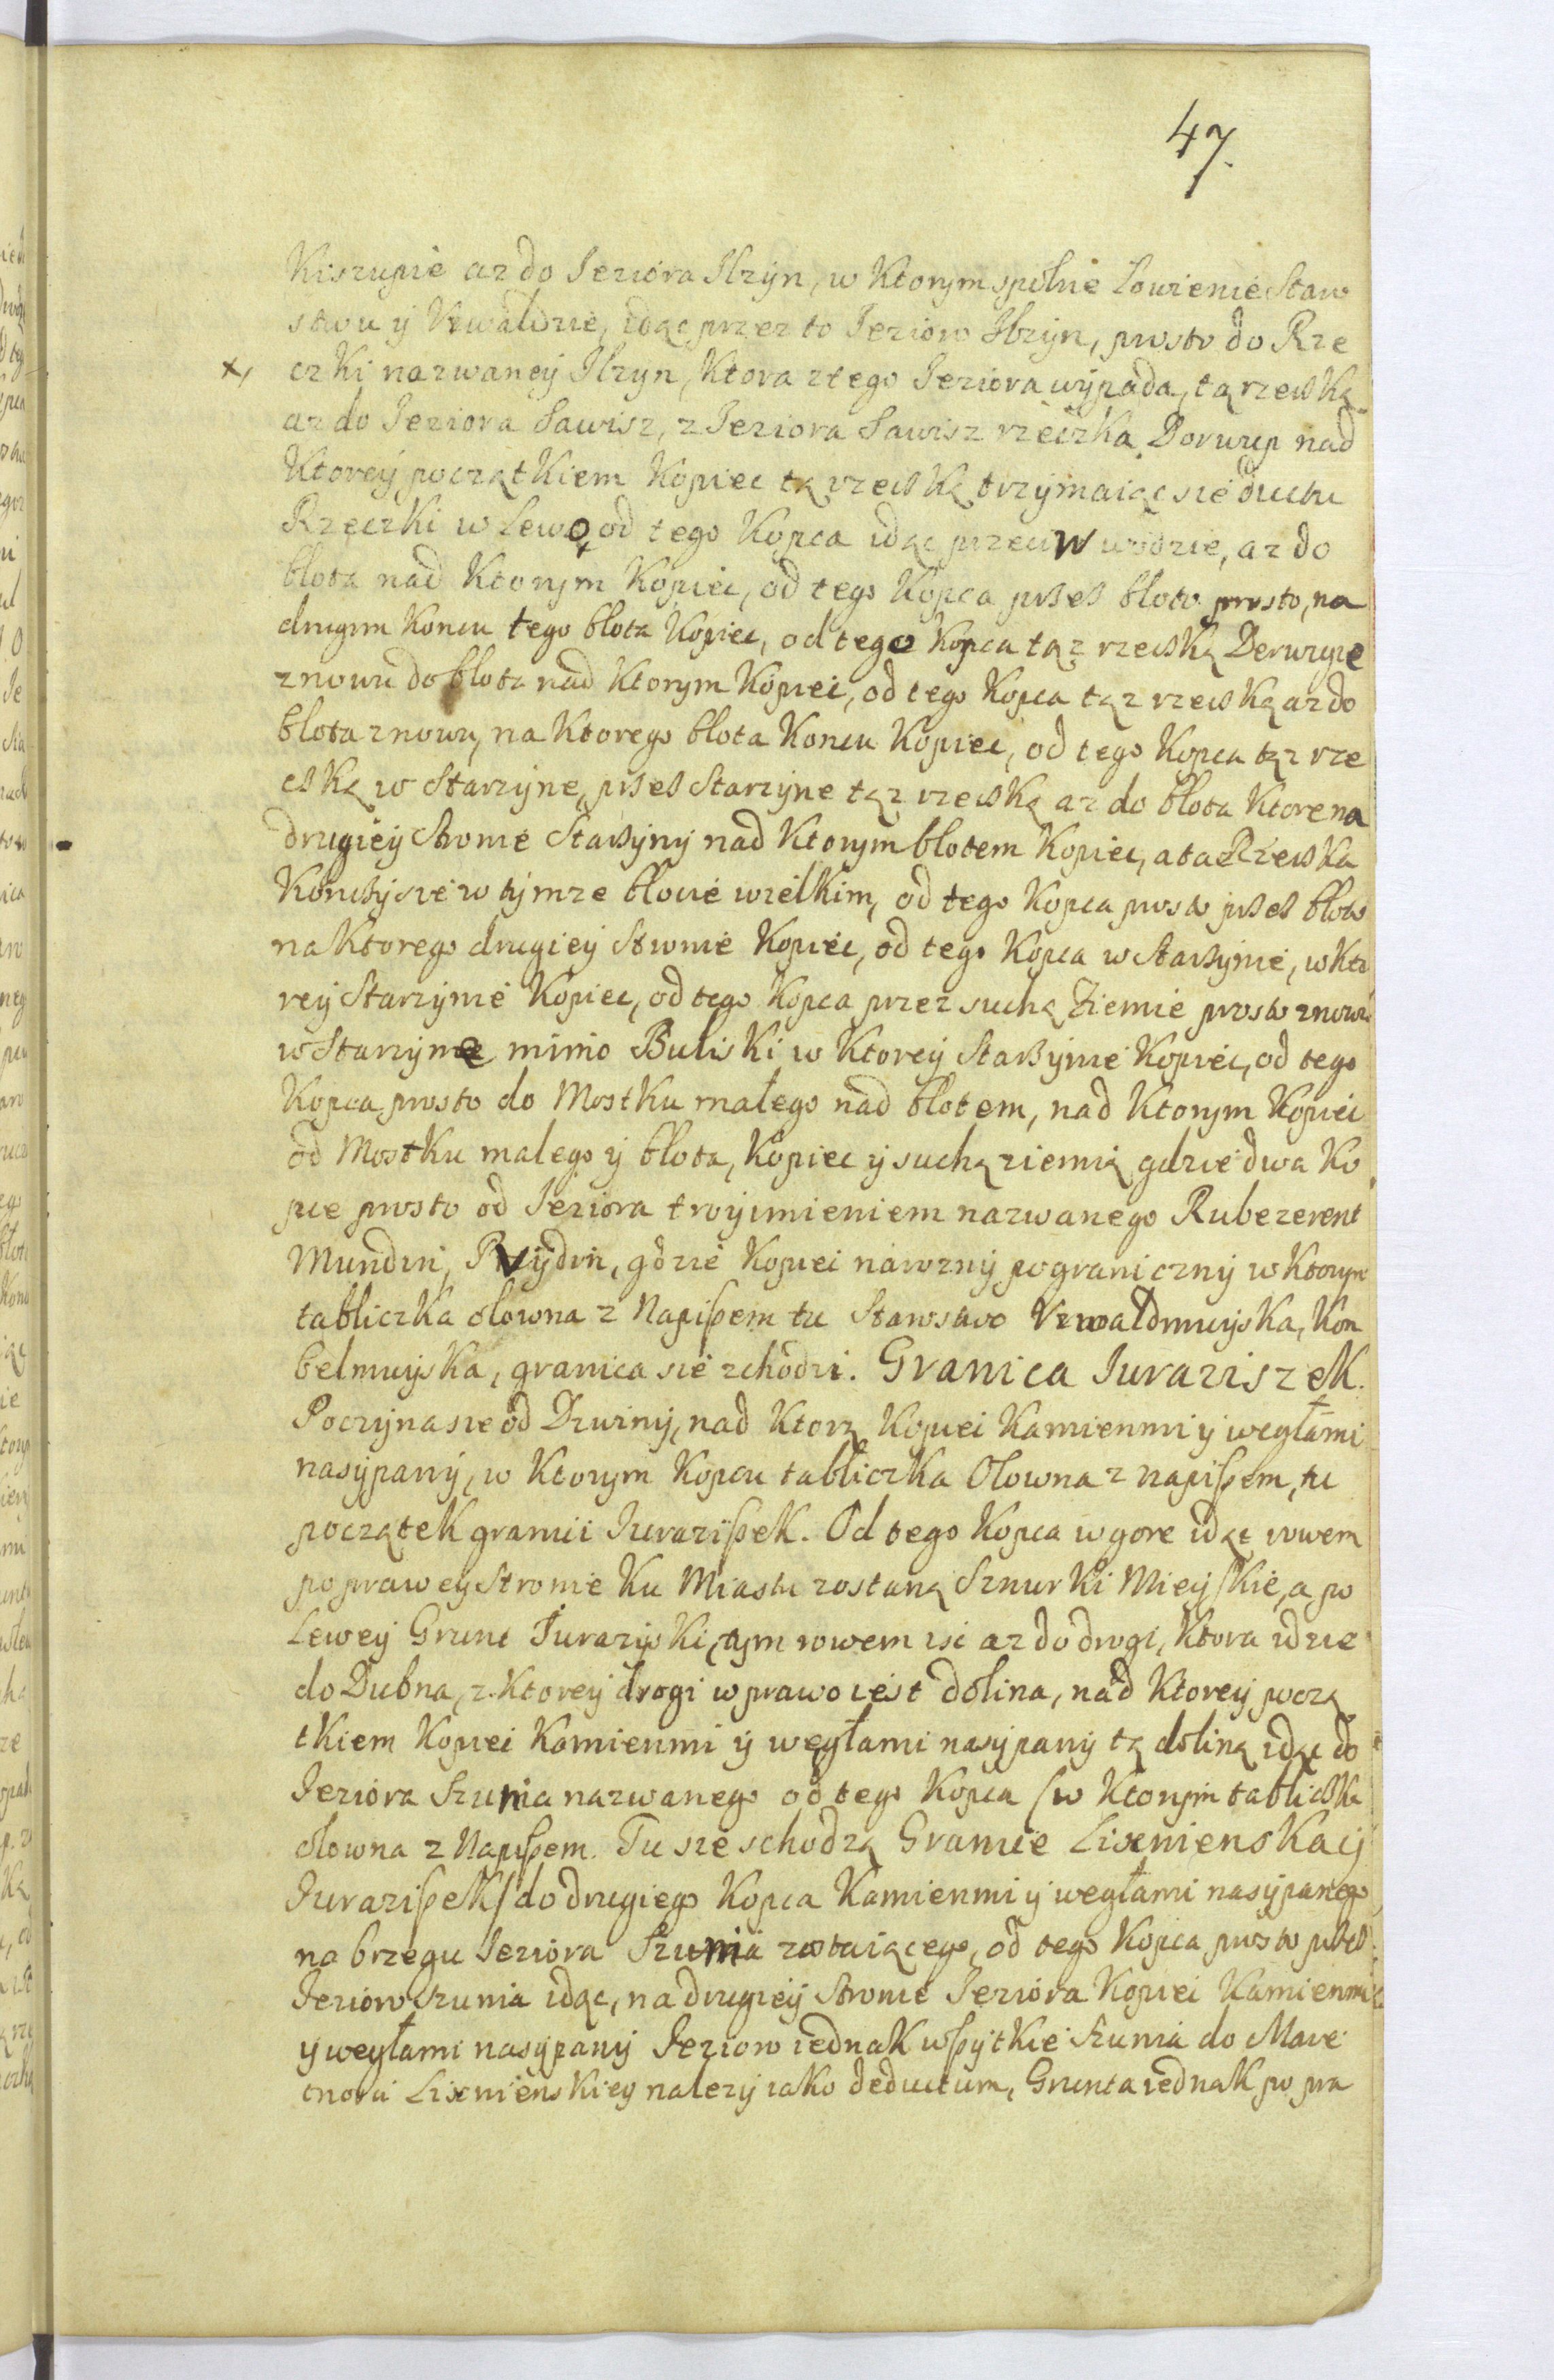 47.
Kiszupie az do Jeziora Ilzyn, w Ktorym spolnie Lowienie Staro
stwu ÿ Vrwaldzie, idąc przez to Jezioro Ilzyn, prosto do Rze
x, czKi nazwaneÿ Ilzyn, Ktora z tego Jeziora wÿpada, tą rzeczKą
az do Jeziora Sawisz, z Jeziora Sawisz rzeczKa Dorwup nad
Ktoreÿ początKiem Kopiec tą rzeczKą trzÿmaiąc się duchu
RzeczKi w Lewo od tego Kopca idąc przeciw wodzie, az do
błota nad Ktorÿm Kopiec, od tego Kopca przez błoto prosto, na
drugim Koncu tego błota Kopiec, od tego Kopca tąz rzeczKą Derwupie
znowu do błota nad Ktorym Kopiec, od tego Kopca tąz rzeczKą az do
błota znowu, na Ktorego błota Koncu Kopiec, od tego Kopca tąz rze
czKą w Starzÿne, przez Starzÿne tąz rzeczKą az do błota Ktore na
drugieÿ Stronie Starzÿnÿ nad Ktorym błotem Kopiec, a ta RzeczKa
Konczÿ sie w tÿmze błocie wielKim, od tego Kopca prosto przez błoto
na Ktorego drugieÿ Stronie Kopiec, od tego Kopca w Starzÿnie, w Kto
reÿ Starzÿnie Kopiec, od tego Kopca przez suchą Ziemie prosto znowu
w Starzÿne mimo BulisKi w Ktoreÿ Starzÿnie Kopiec, od tego
Kopca prosto do MostKu małego nad błotem, nad Ktorym Kopiec
od MostKu małego ÿ błota, Kopiec ÿ suchą ziemią gdzie dwa Ko
pce prosto od Jeziora troÿimieniem nazwanego Rubezerent
Mundin, Rÿdin, gdzie Kopiec narozny pograniczny w Ktorym
tabliczKa ołowna z Napißem tu Starostwo VrwaldmuÿsKa, Kon
belmuÿsKa, granica sie zchodzi. Granica JuraziszeK.
Poczÿna sie od Dzwinÿ, nad Ktorą Kopiec Kamienmi ÿ węgłami
nasÿpanÿ, w Ktorym Kopcu tabliczKa Ołowna z napißem, tu
począteK granici JurazißeK. Od tego Kopca w gore idąc rowem
po praweÿ Stronie Ku Miastu zostaną SznurKi MieÿsKie, a po
Leweÿ Grunt JurazÿsKi, tym rowem isc az do drogi, Ktora idzie
do Dubna, z Ktoreÿ drogi w prawo iest dolina, nad Ktoreÿ począ
tKiem Kopiec Kamienmi ÿ węgłami nasÿpanÿ tą doliną idąc do
Jeziora Szunia nazwanego od tego Kopca (w Ktorÿm tabliczKa
ołowna z Napißem. Tu sie schodzą Granice LixnienskaÿJ
JurazißeK) do drugiego Kopca Kamienmi ÿ węgłami nasÿpanego
na brzegu Jeziora Szunia zostaiącego, od tego Kopca prosto przez
Jezioro Szunia idąc, na drugieÿ Stronie Jeziora Kopiec Kamienmi
ÿ węgłami nasÿpanÿ Jezioro iednaK wßÿtKie Szunia do Maie
tnosci LixnienskieÿnalezÿiaKo deductum, Grunta iednaK po pra